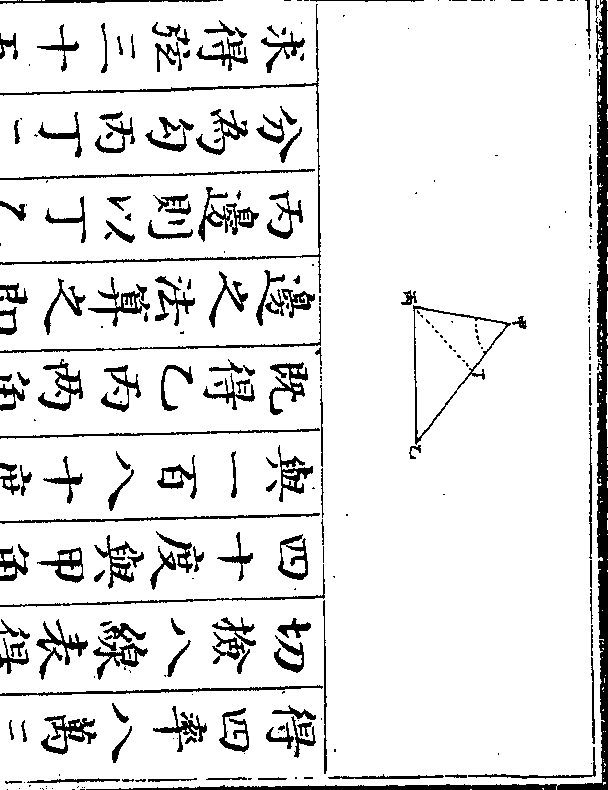 丙
甲
丁
乙
得四率八萬二
切檢八線表得
四十度與甲角
與一百八十度
既得乙丙兩角
邊之法算之即
丙邊則以丁乙
分為勾丙丁一
求得弦三十五